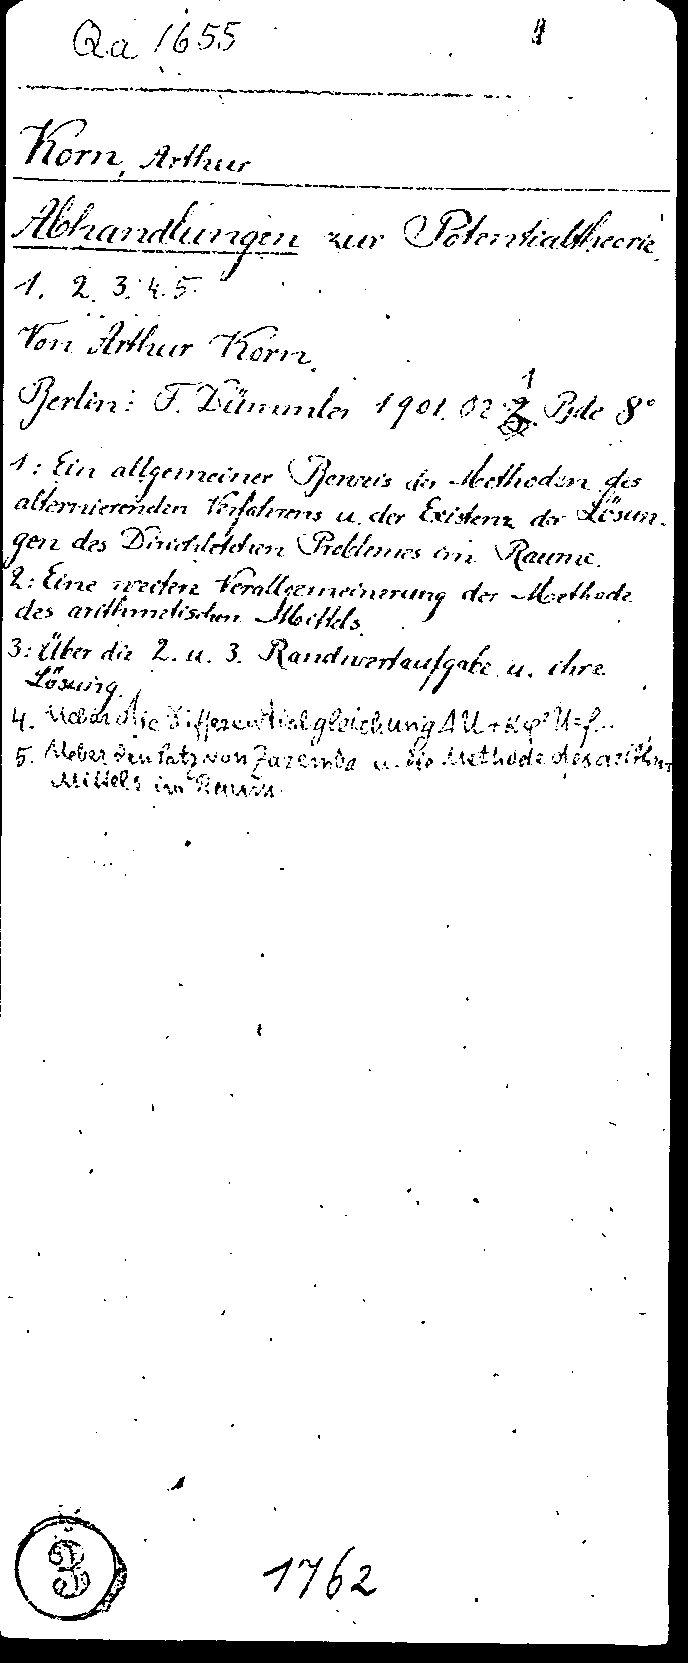 Qa 1655
Korn, Arthur
Abhandlungen zur Potentialtheorie.
1. 2. 3. 4. 5.
Von Arthur Korn.
Berlin: F. Dümmler 1901.02 Bde 8°
1: Ein allgemeiner Beweis der Methoden des
alternierenden Verfahrens u. der Existenz der Lösun-
gen des Dirichletschen Problemes im Raume.
2: Eine weitere Verallgemeinerung der Methode
des arithmetischen Mittels.
3: Über die 2. u. 3. Randwertaufgabe u. ihre
Lösung.
4. Ueber die Differentialgleichung ΔU + kφ²U=f...
5. Ueber den Satz von Zaremba u. die Methode des arithm.
Mittels im Raum.
3
1762